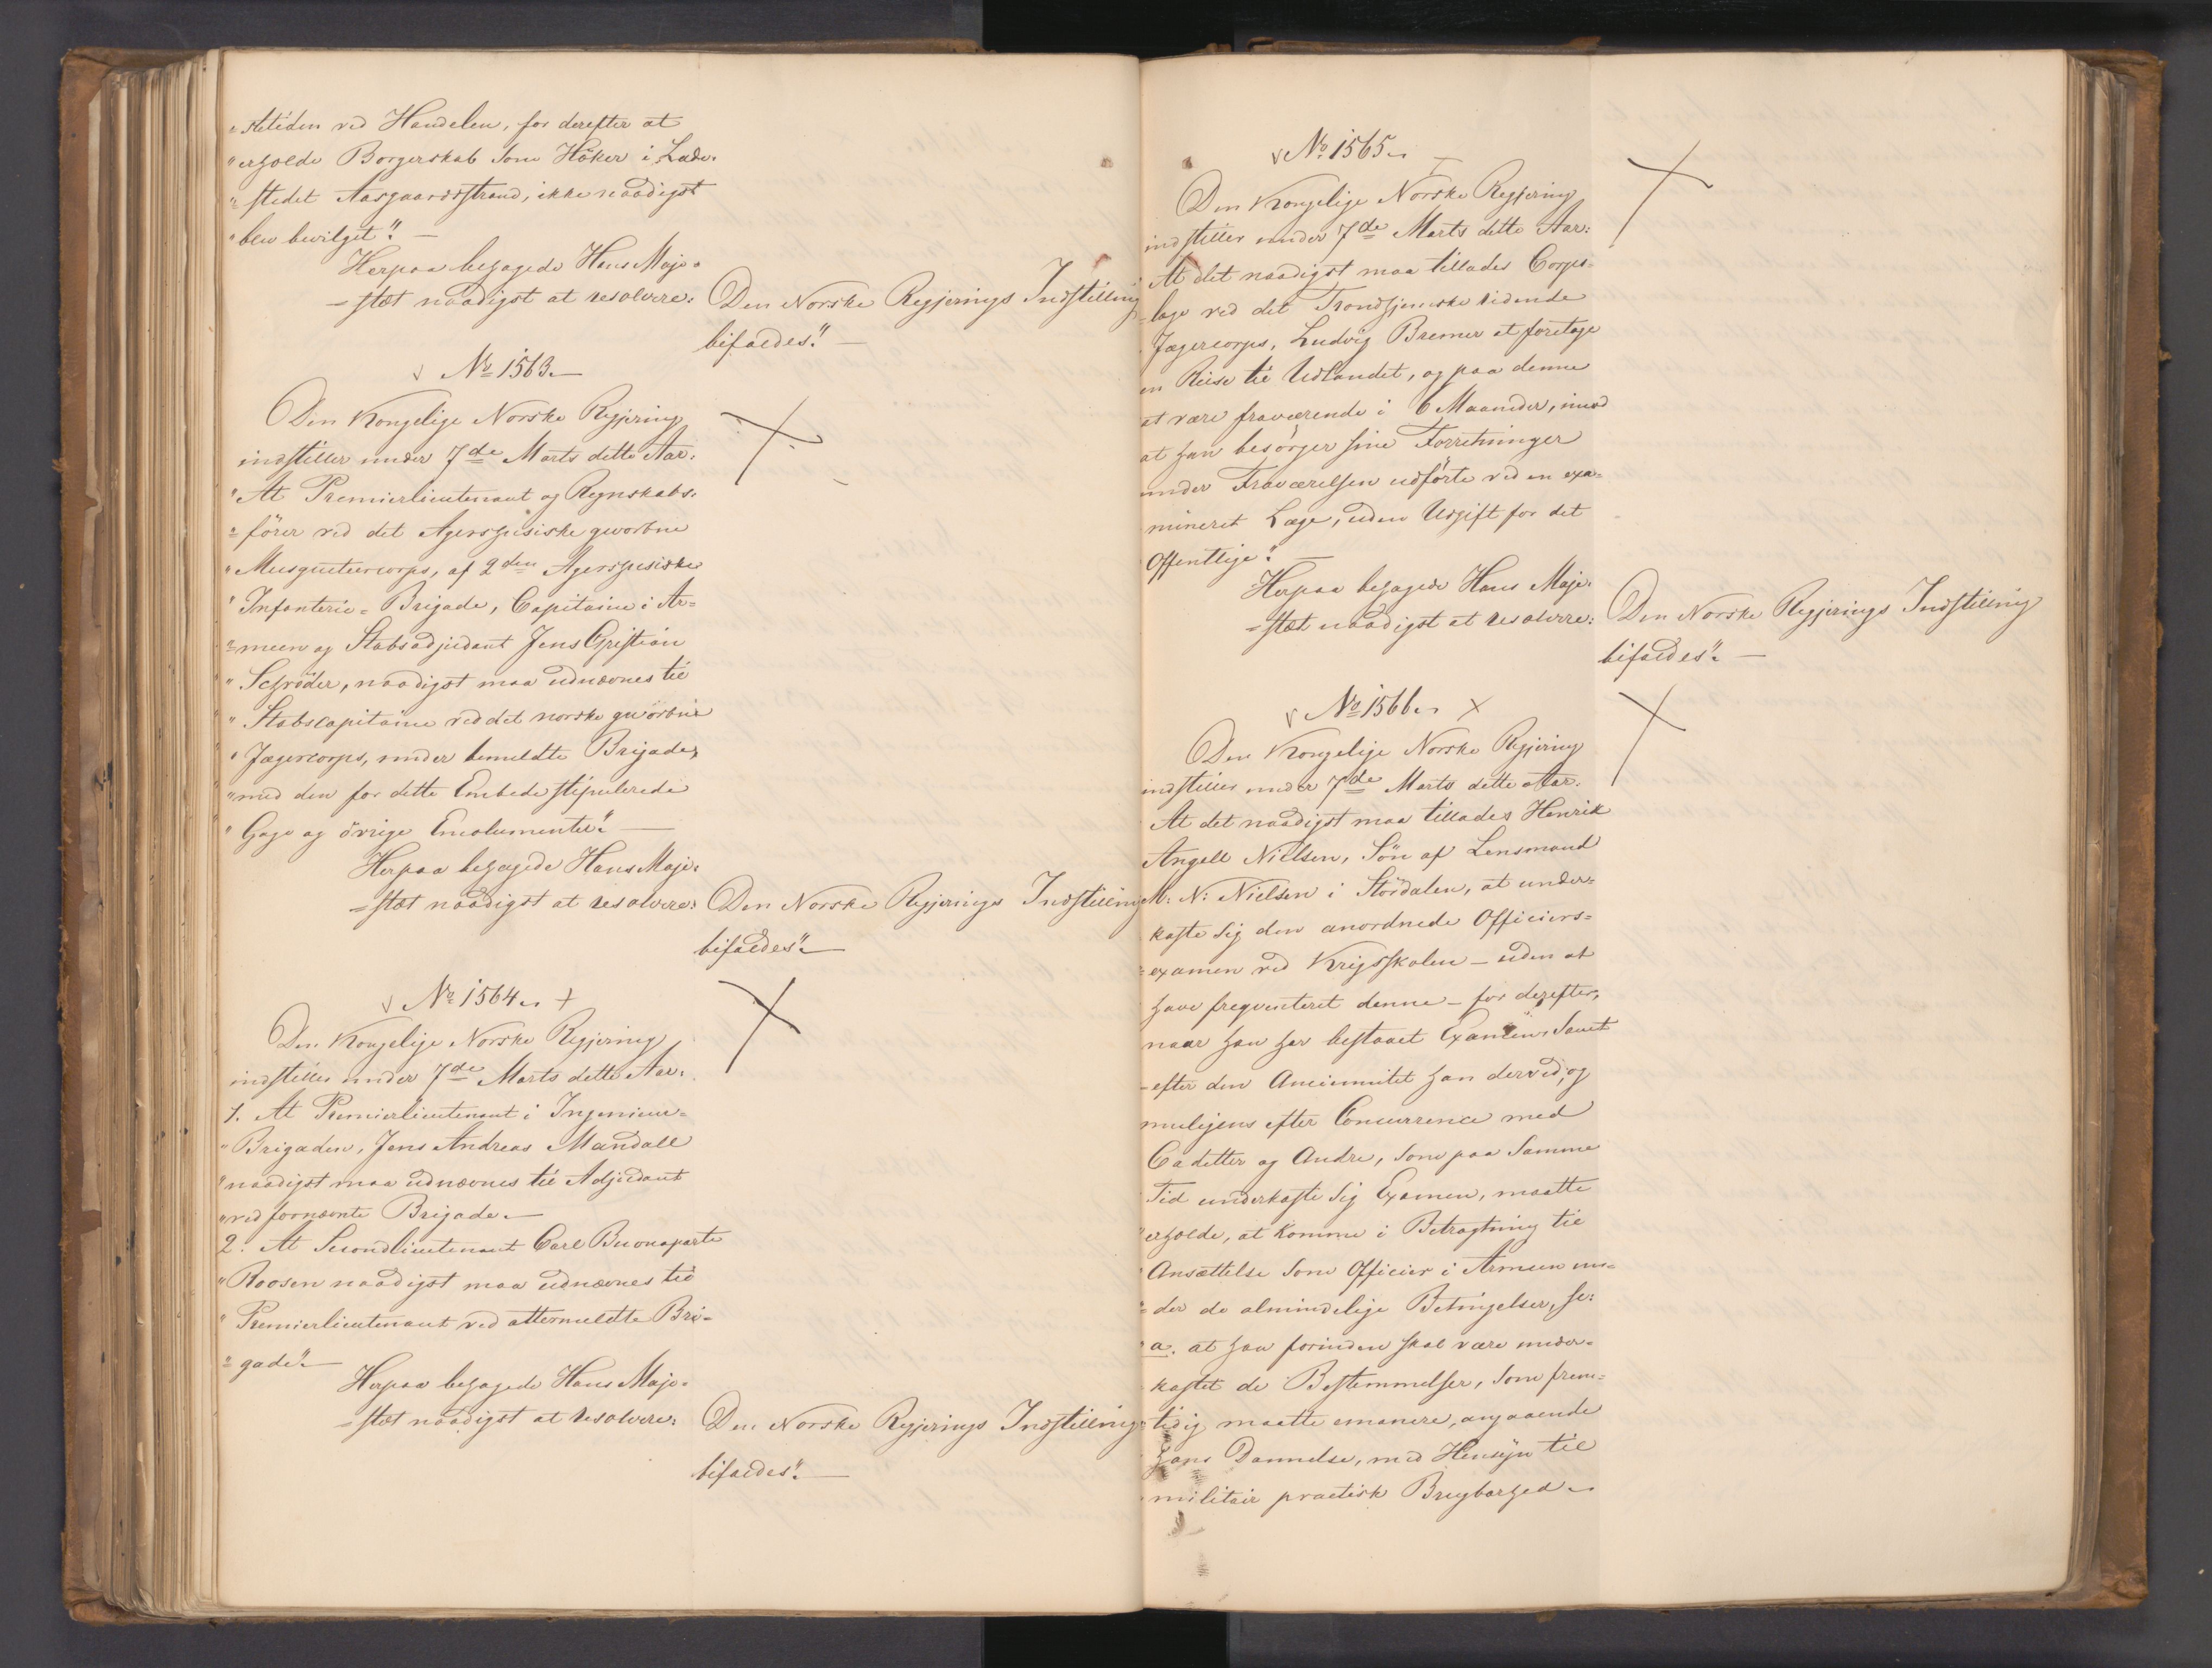 "stetiden ved Handelen, for derefter at
"erholde Borgerskab som Höker i Lade-
"=stedet Aasgaardsstrand, ikke naadigst
"blev bevilget". —
Herpaa behagede Hans Maje-
=stæt naadigst at resolvere: Den Norske Regjerings Indstilling
bifaldes". —
No 1563. —
Den Kongelige Norske Regjering
indstiller under 7de Marts dette Aar:
"At Premierlieutenant og Regnskabs-
"=förer ved det Agershusiske gevorbne
"Musqueteercorps, af 2den Agershusiske
"Infanterie=Brigade, Capitaine i Ar=
"=meen og Stabsadjudant Jens Christian
"Schröder, naadigst maa udnævnes til
"Stabscapitaine ved det norske gevorbne
"Jægercorps, under bemeldte Brigade,
"med den for dette Embede stipulerede
"Gage og övrige Emolumenter". —
Herpaa behagede Hans Maje-
=stæt naadigst at resolvere: Den Norske Regjerings Indstilling
bifaldes". —
No 1564. +
Den Kongelige Norske Regjering
indstiller under 7de Marts dette Aar:
1. At Premierlieutenant i Ingenieur=
"Brigaden, Jens Andreas Mandall
"naadigst maa udnævnes til Adjudant
"ved fornævnte Brigade. —
2. At Secondlieutenant Carl Buonaparte
"Roosen naadigst maa udnævnes til
"Premierlieutenant ved attermeldte Bri=
"=gade". —
Herpaa behagede Hans Maje-
=stæt naadigst at resolvere: Den Norske Regjerings Indstilling
bifaldes". —
No 1565.
Den Kongelige Norske Regjering
indstiller under 7de Marts dette Aar:
At det naadigst maa tillades Corps-
=læge ved det Trondhjemske ridende
Jægercorps, Ludvig Bremer at foretage
en Reise til Udlandet, og paa denne
at være fraværende i 6 Maaneder, imod
at han besörger sine Forretninger
under Fraværelsen udförte ved en exa=
mineret Læge, uden Udgift for det
Offentlige". —
Herpaa behagede Hans Maje-
=stæt naadigst at resolvere: Den Norske Regjerings Indstilling
bifaldes". —
No 1566. X
Den Kongelige Norske Regjering
indstiller under 7de Marts dette Aar:
At det naadigst maa tillades Henrik
Angell Nielsen, Sön af Lensmand
M: N: Nielsen i Stördalen, at under=
kaste sig den anordnede Officiers=
=examen ved Krigsskolen — uden at
have freqventeret denne — for derefter,
naar han har bestaaet Examen samt
efter den Anciennitet han derved, og
muligens efter Concurrence med
Cadetter og Andre, som paa samme
Tid underkaste sig Examen, maatte
"erholde, at komme i Betragtning til
Ansættelse som Officier i Armeen un=
=der de almindelige Betingelser, se:
"a. at han forinden skal være under=
kastet de Bestemmelser, som frem=
tidig maatte emanere, angaaende
hans Dannelse, med Hensyn til
militair practisk Brugbarhed. —